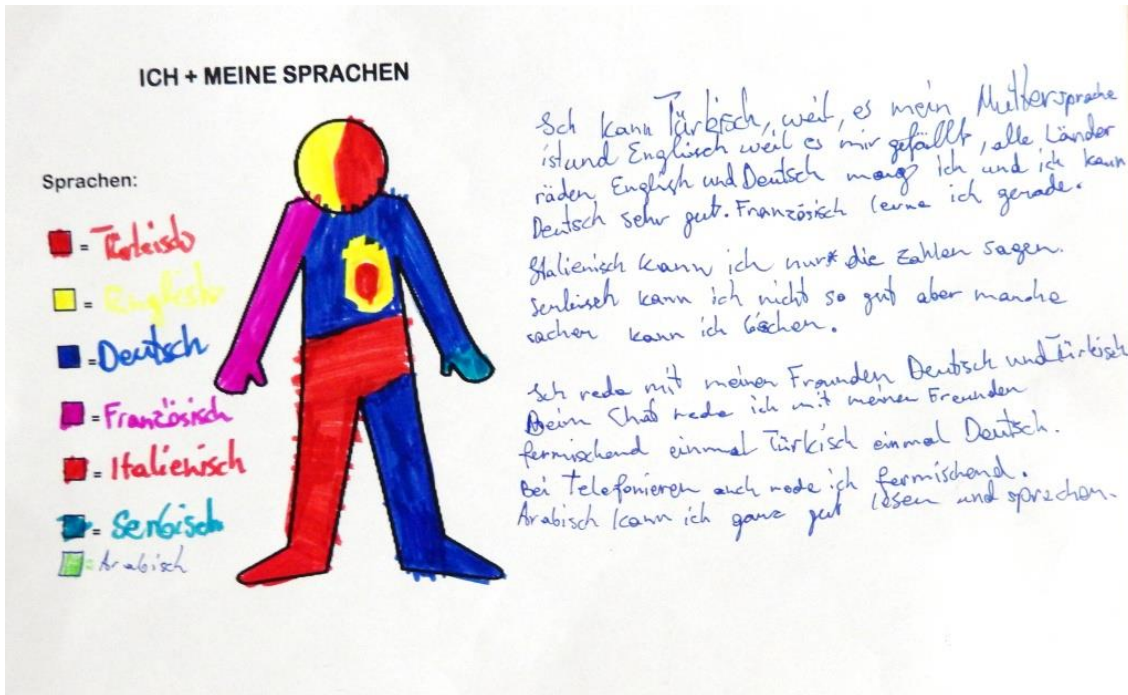 ICH + MEINE SPRACHEN
Sprachen:
= Türkisch
= Englisch
= Deutsch
= Französisch
= Italienisch
= Serbisch
= Arabisch
Ich kann Türkisch, weil, es mein Muttersprache
ist und Englisch weil es mir gefällt, alle Länder
räden, English und Deutsch mag ich und ich kann
Deutsch sehr gut. Französisch lerne ich gerade.
Italienisch kann ich nur die Zahlen sagen.
kann ich nicht so gut aber manche
sachen kann ich
Ich rede mit meinen Freunden Deutsch und Türkisch
Beim Chat rede ich mit meinen Freunden
fermischend einmal Türkisch einmal Deutsch.
Bei Telefonieren auch rede ich fermischend.
Arabisch kann ich ganz gut lesen und sprechen.